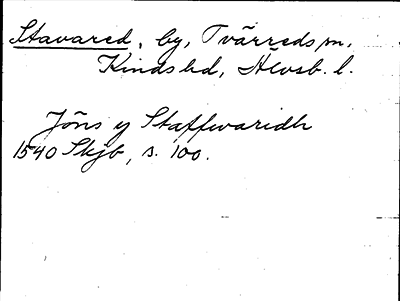 Stavared, by, Tvärreds sn.
Kinds hd, Älvsb. l.
Jöns y Staffwaridh
1540 Skjb, s. 100.